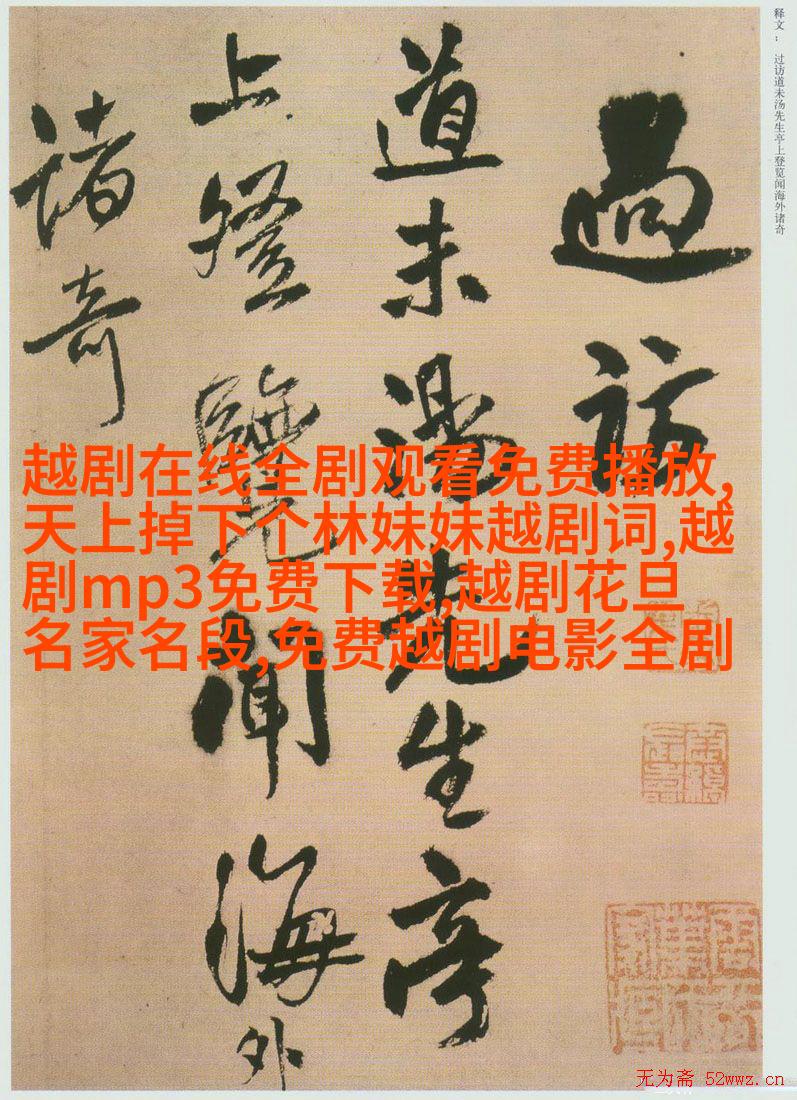 释文： 过访道未汤先生亭上登览闻海外诸奇
過訪
道未湯先生亭
上登覽聞海外
諸奇
越剧在线全剧观看免费播放,
天上掉下个林妹妹越剧词,越
剧mp3免费下载,越剧花旦
名家名段,免费越剧电影全剧
无为斋 52wwz.cn